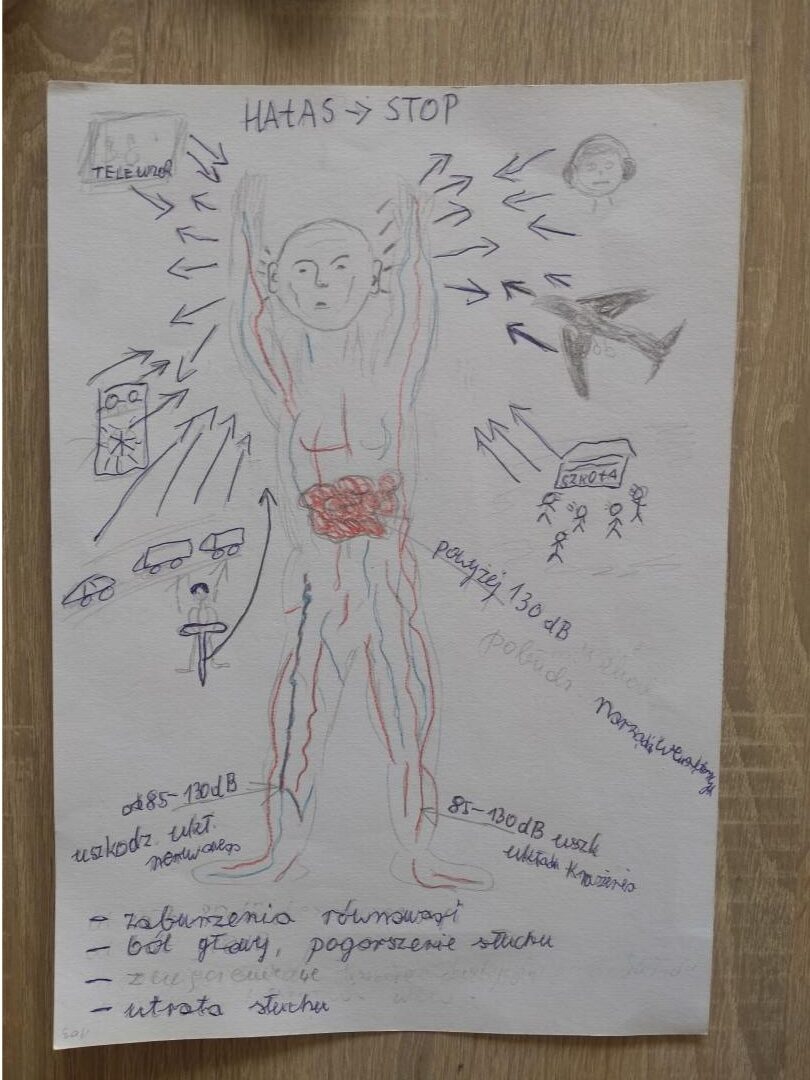 HAŁAS → STOP
TELEWIZOR
SZKOŁA
powyżej 130 dB
pobudz.
narządów wewnętrznych
od 85-130 dB
uszkodz. ukł.
nerwowego
85-130 dB uszk
układu krążenia
- zaburzenia równowagi
- ból głowy, pogorszenie słuchu
- utrata słuchu